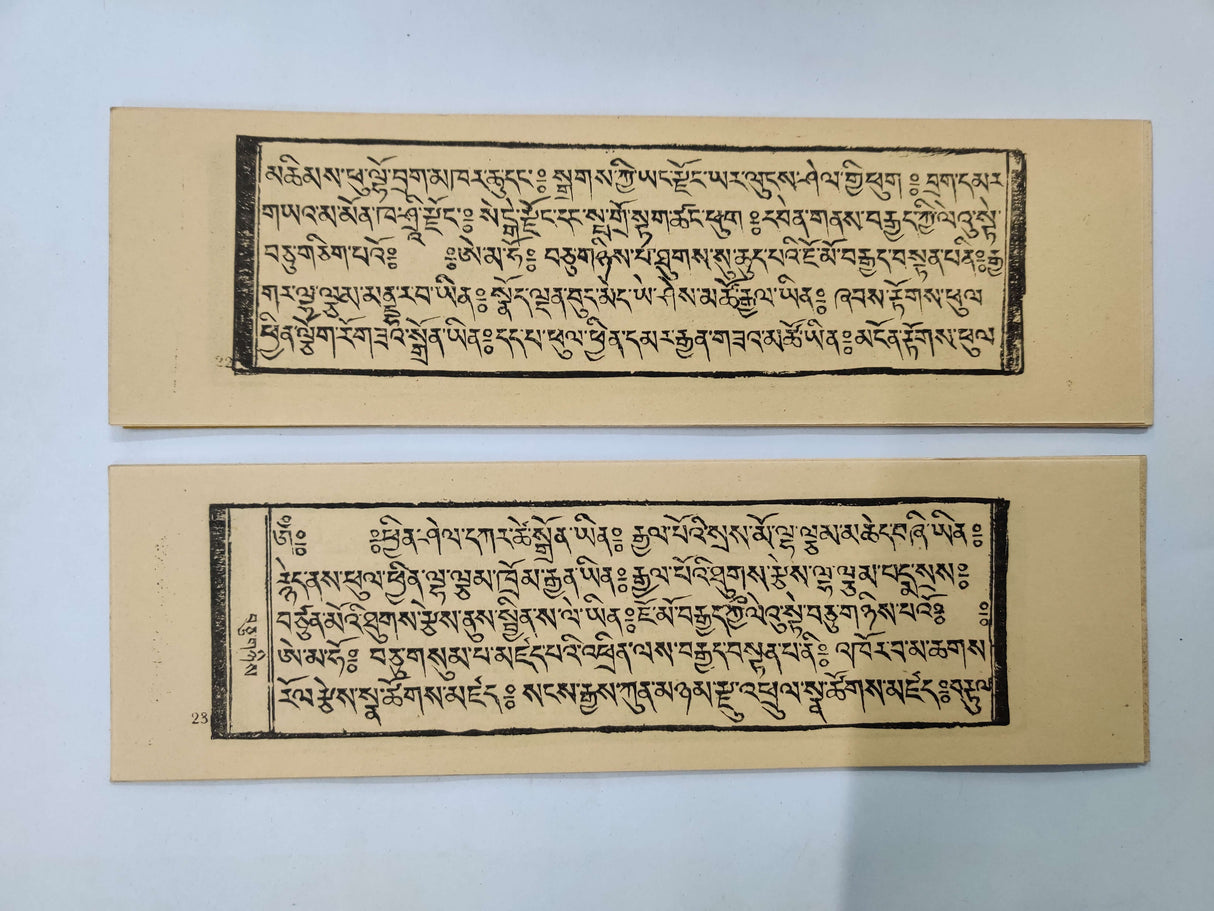 མཆིམས་ཕུ་ལྷོ་བྲག་མཁར་ཆུ་དང་༔ སྒྲགས་ཀྱི་ཡང་རྫོང་ཡར་ལུངས་ཤེལ་གྱི་ཕུག༔ བྲག་དམར
གཡའ་མ་མོན་ཁ་ཤྲཱི་རྫོང་༔ སེངྒེ་རྫོང་དང་སྤ་གྲོ་སྟག་ཚང་ཕུག༔ དབེན་གནས་བརྒྱད་ཀྱི་ལེའུ་སྟེ་
བཅུ་གཅིག་པའོ༔ ༔ཨེ་མ་ཧོ༔ བཅུ་གཉིས་པ་ཐུགས་སུ་ཆུད་པའི་ཇོ་མོ་བརྒྱད་བསྟན་པ་ནི༔
གར་ལྷ་ལྕམ་མནྡ་ར་བ་ཡིན༔ སྣོད་ལྡན་བུད་མེད་ཡེ་ཤེས་མཚོ་རྒྱལ་ཡིན༔ ཞབས་རྟོགས་ཕུལ
ཕྱིན་ལྕོག་རོ་གཟའ་སྒྲོན་ཡིན༔ དད་པ་ཕུལ་ཕྱིན་དམར་རྒྱན་གཟའ་མཚོ་ཡིན༔ མངོན་རྟོགས་ཕུལ
༔ཕྱིན་ཤེལ་དཀར་ཚེ་སྒྲོན་ཡིན༔ རྒྱལ་པོའི་སྲས་མོ་ལྷ་ལྕམ་མཆེད་བཞི་ཡིན༔
ནས་ཕུལ་ཕྱིན་ལྷ་ལྕམ་ཁྲོམ་རྒྱན་ཡིན༔ རྒྱལ་པོའི་ཐུགས་རྩེས་ལྷ་ལྕམ་པདྨ་སྲས༔
བཙུན་མོའི་ཐུགས་རྩེས་ནུས་སྦྱིན་ས་ལེ་ཡིན༔ ཇོ་མོ་བརྒྱད་ཀྱི་ལེའུ་སྟེ་བཅུ་གཉིས་པའོ༔ ༔
ཨེ་མ་ཧོ༔ བཅུ་གསུམ་པ་མཛད་པའི་འཕྲིན་ལས་བརྒྱད་བསྟན་པ་ནི༔ འཁོར་བ་མ་ཆགས
རོལ་རྩེས་སྣ་ཚོགས་མཛད༔ སངས་རྒྱས་ཀུན་མཉམ་རྫུ་འཕྲུལ་སྣ་ཚོགས་མཛད༔
23